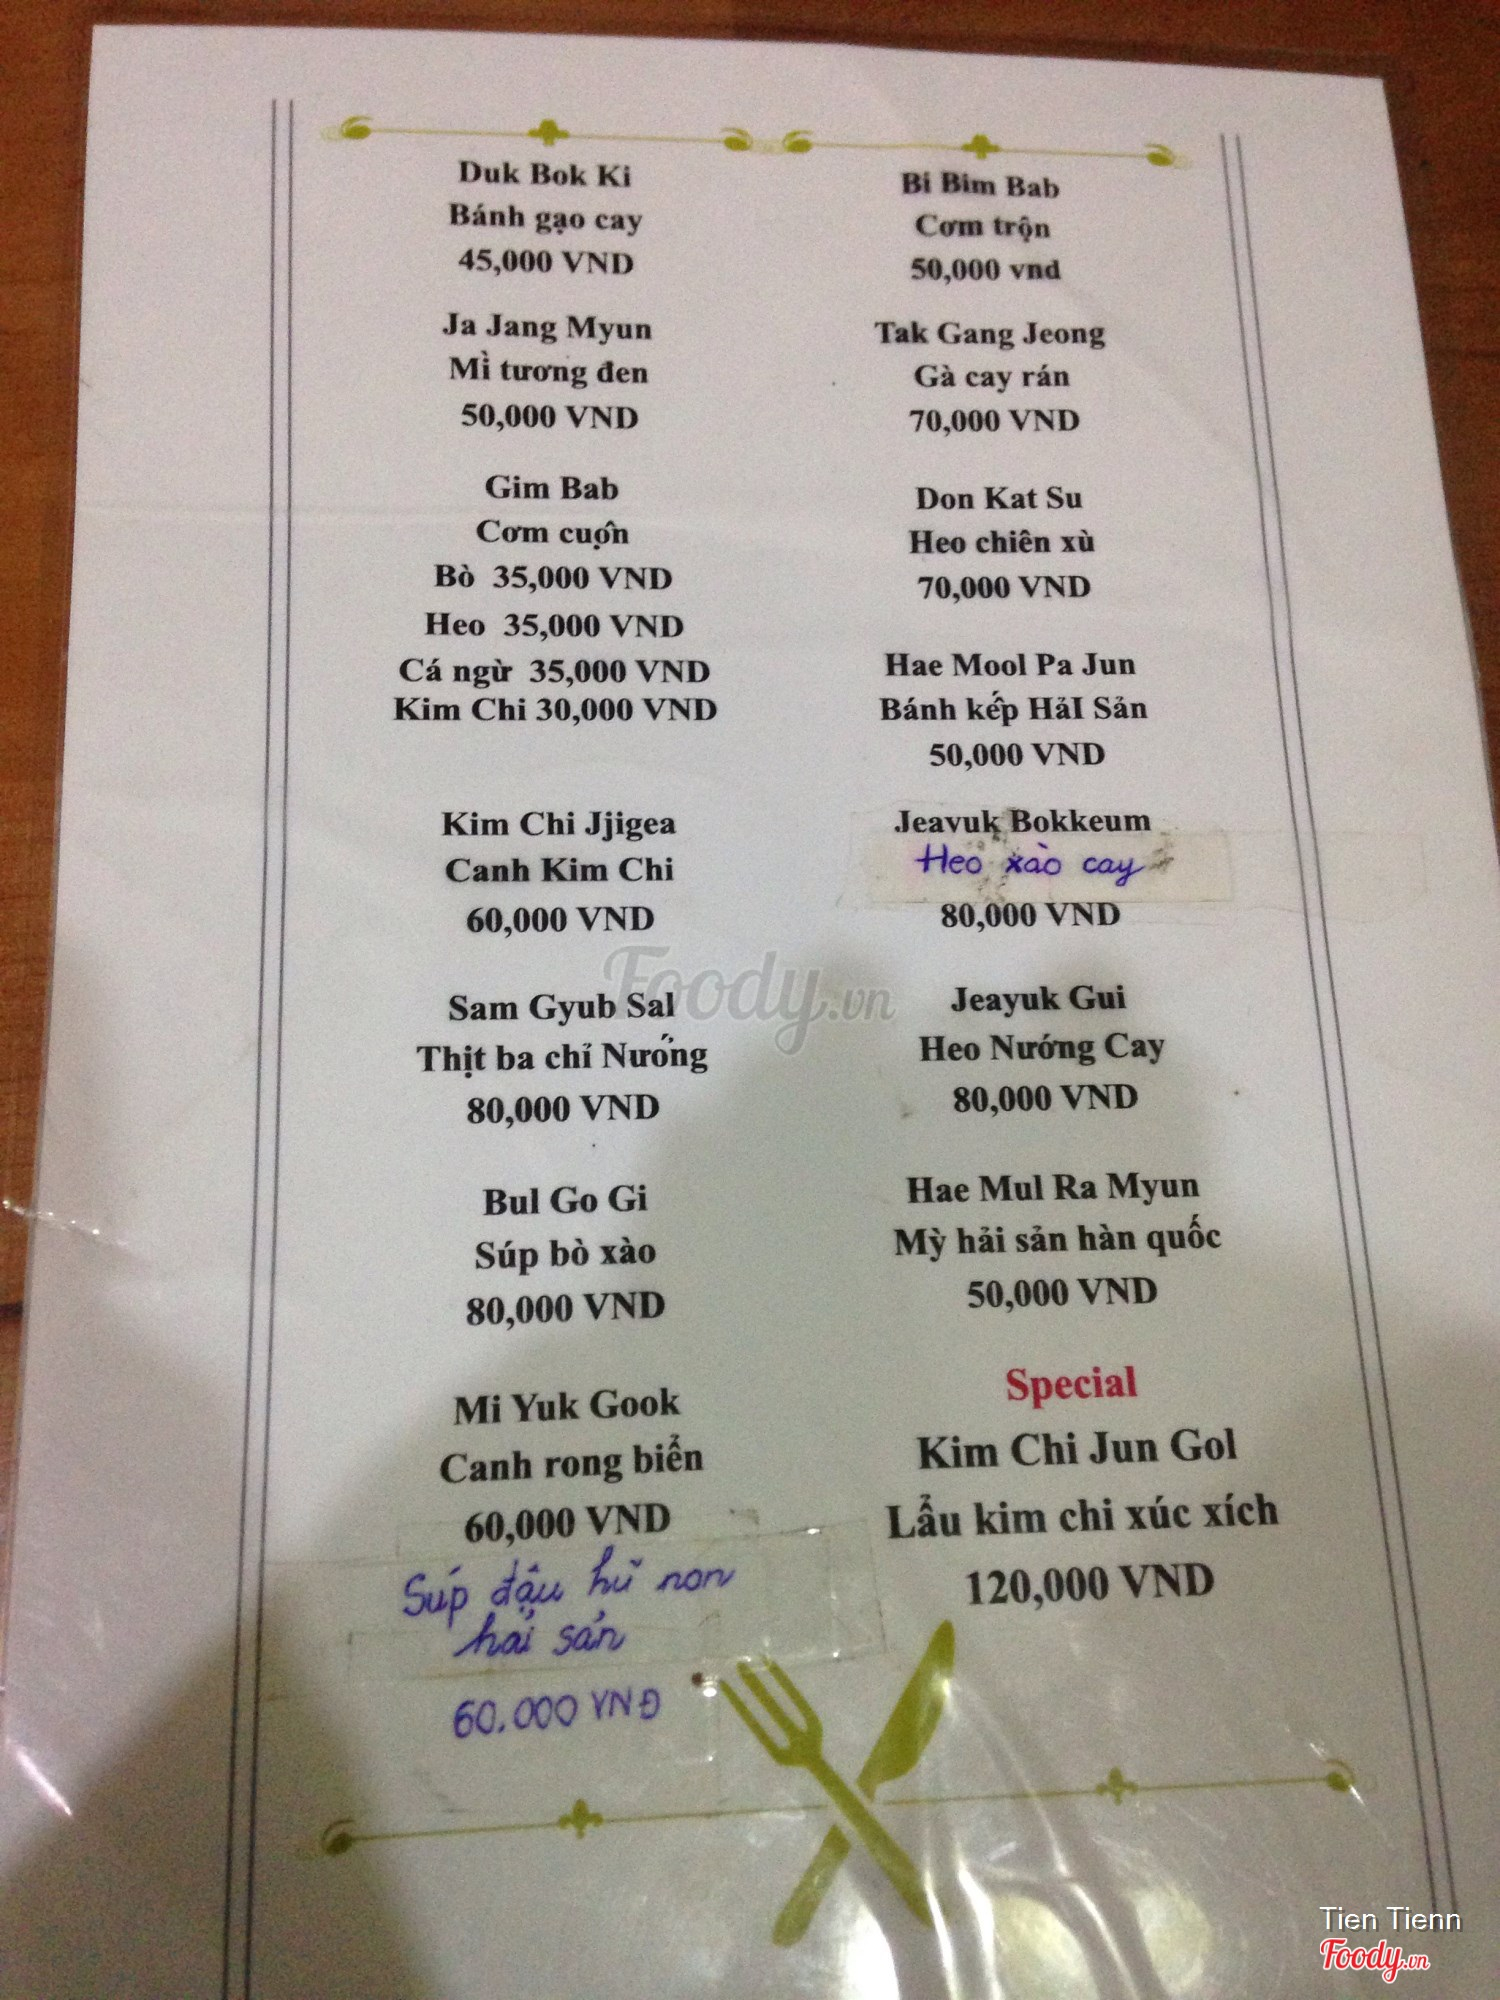 Duk Bok Ki
Bánh gạo cay
45,000 VND
Ja Jang Myun
Mì tương đen
50,000 VND
Gim Bab
Cơm cuộn
Bò 35,000 VND
Heo 35,000 VND
Cá ngừ 35,000 VND
Kim Chi 30,000 VND
Kim Chi Jjigea
Canh Kim Chi
60,000 VND
Sam Gyub Sal
Thịt ba chỉ Nướng
80,000 VND
Bul Go Gi
Súp bò xào
80,000 VND
Mi Yuk Gook
Canh rong biển
60,000 VND
Súp đậu hũ non
hải sản
60.000 VNĐ
Bi Bim Bab
Cơm trộn
50,000 vnd
Tak Gang Jeong
Gà cay rán
70,000 VND
Don Kat Su
Heo chiên xù
70,000 VND
Hae Mool Pa Jun
Bánh kếp HảI Sản
50,000 VND
Jeayuk Bokkeum
Heo xào cay
80,000 VND
Jeayuk Gui
Heo Nướng Cay
80,000 VND
Hae Mul Ra Myun
Mỳ hải sản hàn quốc
50,000 VND
Special
Kim Chi Jun Gol
Lẩu kim chi xúc xích
120,000 VND
Foody.vn
Tien Tienn
Foody.vn